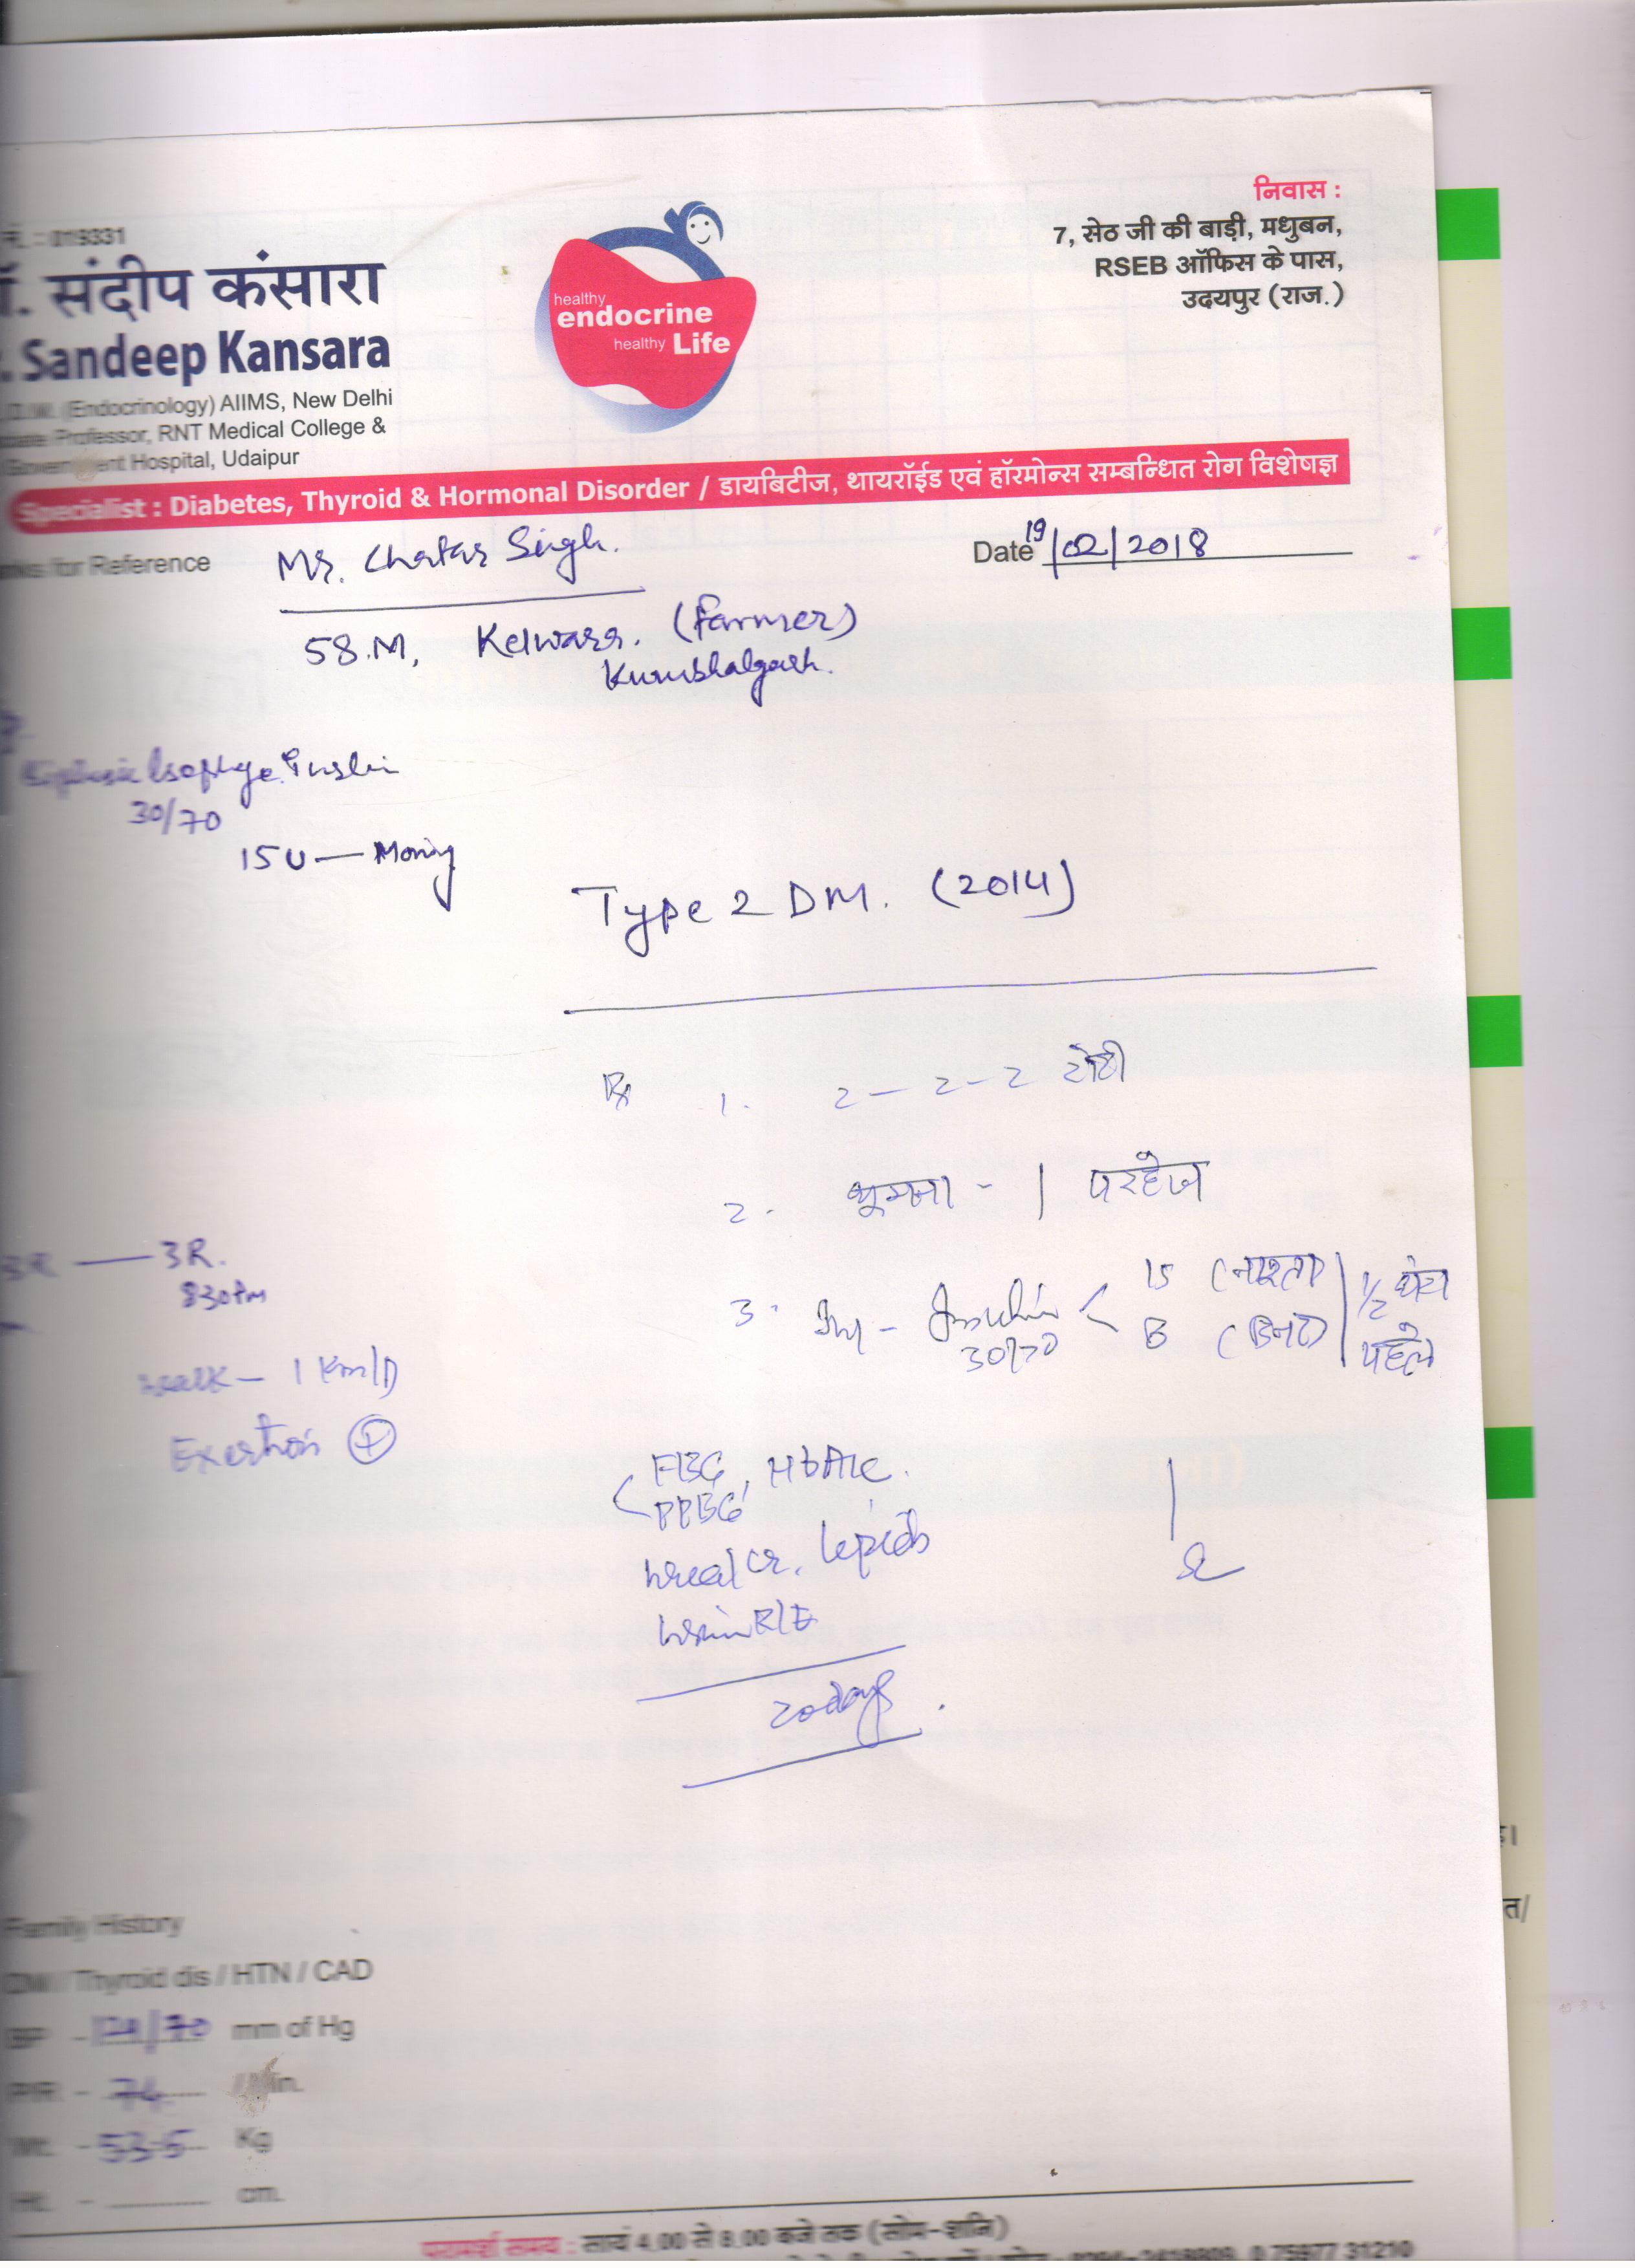 : 019331
निवास :
7, सेठ जी की बाड़ी, मधुबन,
RSEB ऑफिस के पास,
उदयपुर (राज.)
संदीप कंसारा
Sandeep Kansara
(Endocrinology) AIIMS, New Delhi
Professor, RNT Medical College &
Hospital, Udaipur
healthy
endocrine
healthy Life
Specialist : Diabetes, Thyroid & Hormonal Disorder / डायबिटीज, थायरॉईड एवं हॉरमोन्स सम्बन्धित रोग विशेषज्ञ
for Reference
Mr. Chatar Singh.
Date 19/02/2018
58.M, Kelwara. (Farmer)
Kumbhalgarh.
30/70
15U — Morning
Type 2 DM. (2014)
Rx 1. 2 - 2 - 2 रोटी
2. - परहेज
3R — 3R.
830 Pm
3. Inj - Insulin < 15 (नाश्ता) 1/2 घंटा
30/70 (डिनर) पहले
walk - 1 Km/D
Exertion +
FBG, HbA1c.
PPBG
urea/cr. lipids
urine R/E
20 days.
Family History
DM / Thyroid dis / HTN / CAD
BP - /70 mm of Hg
P/R - 74 /Min.
Wt. - 53.5 Kg
Ht. - cm.
परामर्श समय : सायं 4.00 से 8.00 बजे तक (सोम-शनि)